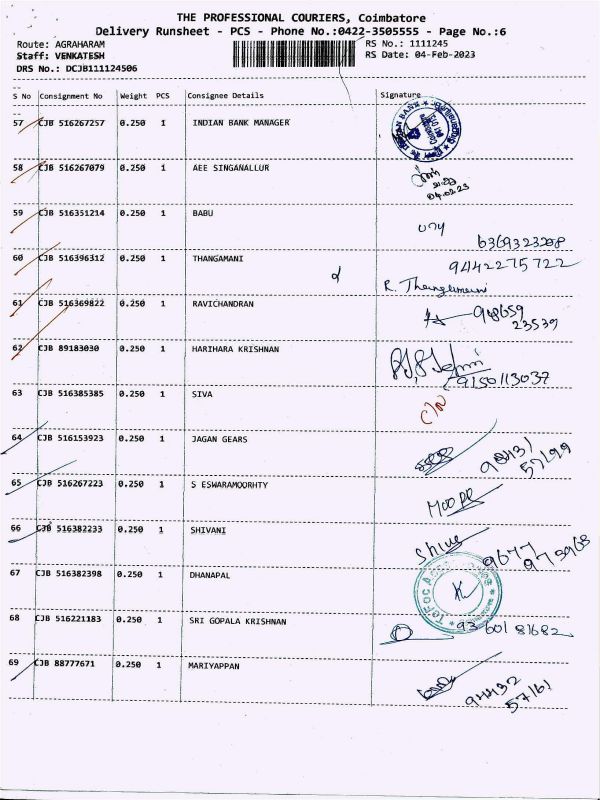 THE PROFESSIONAL COURIERS, Coimbatore
Delivery Runsheet - PCS - Phone No.:0422-3505555 - Page No.:6
Route: AGRAHARAM RS No.: 1111245
Staff: VENKATESH RS Date: 04-Feb-2023
DRS No.: DCJB111124506
S No Consignment No Weight PCS Consignee Details Signature
57 CJB 516267257 0.250 1 INDIAN BANK MANAGER
58 CJB 516267079 0.250 1 AEE SINGANALLUR
04.02.23
59 CJB 516351214 0.250 1 BABU
பாபு
6369323208
60 CJB 516396312 0.250 1 THANGAMANI 9442275722
R. Thangamani
61 CJB 516369822 0.250 1 RAVICHANDRAN 948659
23539
62 CJB 89183030 0.250 1 HARIHARA KRISHNAN
9150113037
63 CJB 516385385 0.250 1 SIVA
64 CJB 516153923 0.250 1 JAGAN GEARS
57199
65 CJB 516267223 0.250 1 S ESWARAMOORHTY
66 CJB 516382233 0.250 1 SHIVANI
Shiva 9677
67 CJB 516382398 0.250 1 DHANAPAL
68 CJB 516221183 0.250 1 SRI GOPALA KRISHNAN
9360181682
69 CJB 88777671 0.250 1 MARIYAPPAN
94432
57161